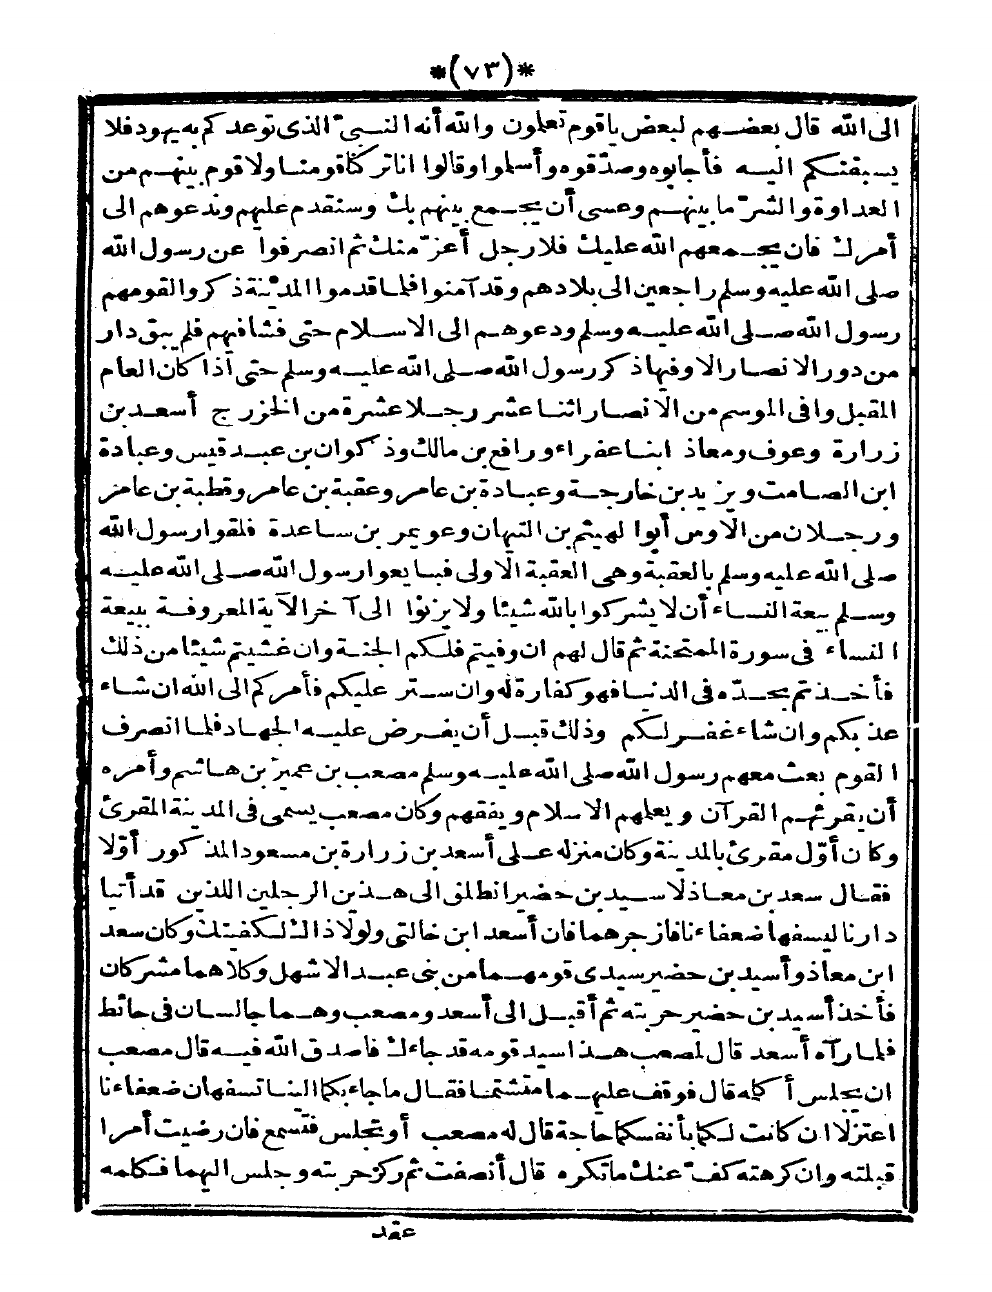 *(٧٣)*
الى الله قال بعضهم لبعض ياقوم تعلمون والله أنه النبىّ الذى توعدكم به يهود فلا
يسبقنكم اليه فأجابوه وصدّقوه وأسلموا وقالوا اناتركنا قومنا ولا قوم بينهم من
العداوة والشرّ ما بينهم وعسى أن يجمع بينهم بك وسنقدم عليهم وندعوهم الى
أمرك فان يجمعهم الله عليك فلا رجل أعزّ منك ثم انصرفوا عن رسول الله
صلى الله عليه وسلم راجعين الى بلادهم وقد آمنوا فلما قدموا المدينة ذكروا لقومهم
رسول الله صلى الله عليه وسلم ودعوهم الى الاسلام حتى فشافيهم فلم يبق دار
من دور الانصار الا وفيها ذكر رسول الله صلى الله عليه وسلم حتى آذا كان العام
المقبل وافى الموسم من الانصار اثنا عشر رجلا عشرة من الخزرج أسعد بن
زرارة وعوف ومعاذ ابنا عفراء ورافع بن مالك وذكوان بن عبد قيس وعبادة
ابن الصامت ويزيد بن خارجة وعبادة بن عامر وعقبة بن عامر وقطبة بن عامر
ورجلان من الاوس أبوا لهيثم بن التيهان وعويمر بن ساعدة فلقوا رسول الله
صلى الله عليه وسلم بالعقبة وهى العقبة الاولى فبايعوا رسول الله صلى الله عليه
وسلم بيعة النساء أن لا يشركوا بالله شيئا ولا يزنوا الى آخر الآية المعروفة ببيعة
النساء فى سورة الممتحنة ثم قال لهم ان وفيتم فلكم الجنة وان غشيتم شيئا من ذلك
فأخذتم بحدّه فى الدنيا فهو كفارة له وان ستر عليكم فأمركم الى الله ان شاء
عذبكم وان شاء غفر لكم وذلك قبل أن يفرض عليه الجهاد فلما انصرف
القوم بعث معهم رسول الله صلى الله عليه وسلم مصعب بن عمير بن هاشم وأمره
أن يقرئهم القرآن ويعلمهم الاسلام ويفقههم وكان مصعب يسمى فى المدينة المقرئ
وكان أوّل مقرئ بالمدينة وكان منزله على أسعد بن زرارة بن مسعود المذكور أوّلا
فقال سعد بن معاذ لاسيد بن حضير انطلق الى هذين الرجلين اللذين قد أتيا
دارنا ليسفها ضعفاءنا فازجرهما فان أسعد ابن خالتى ولولا ذاك لكفيتك وكان سعد
ابن معاذ وأسيد بن حضير سيدى قومهما من بنى عبد الاشهل وكلاهما مشركان
فأخذ أسيد بن حضير حربته ثم أقبل الى أسعد ومصعب وهما جالسان فى حائط
فلما رآه أسعد قال لمصعب هذا سيد قومه قد جاءك فاصدق الله فيه قال مصعب
ان يجلس أكلمه قال فوقف عليهما متشتما فقال ما جاء بكما الينا تسفهان ضعفاءنا
اعتزلا ان كانت لكما بأنفسكما حاجة قال له مصعب أو تجلس فتسمع فان رضيت أمرا
قبلته وان كرهته كفّ عنك ما تكره قال أنصفت ثم ركز حربته وجلس اليهما فكلمه
عقد